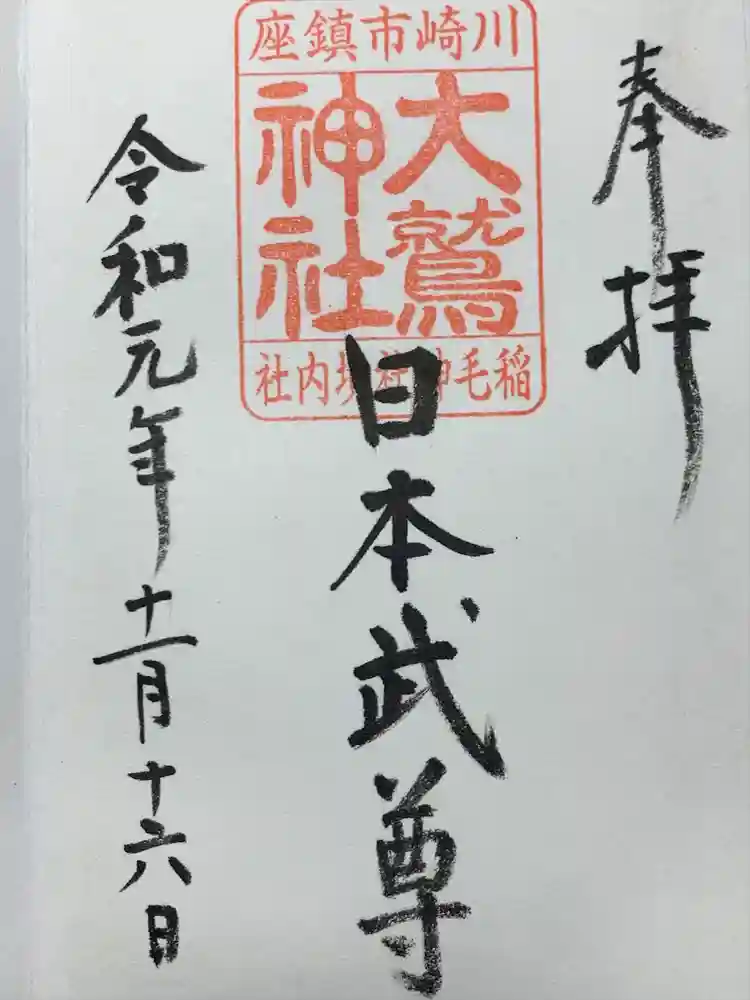 奉拝
川崎市鎮座
大鷲
神社
稲毛神社境内社
日本武尊
令和元年十一月十六日